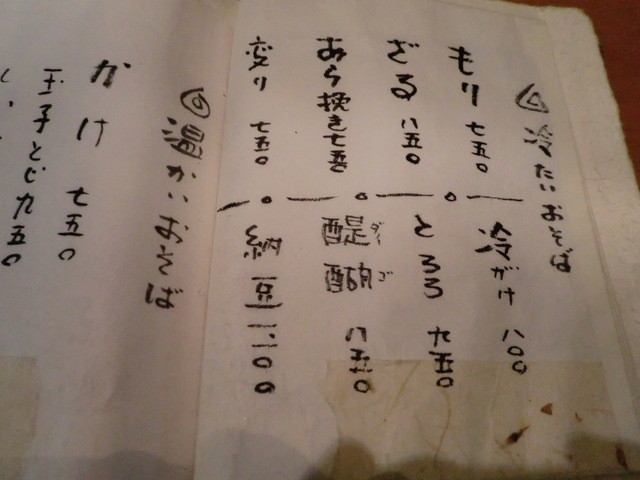 冷たいおそば
もり 七五〇
ざる 八五〇
あら挽き 七五〇
変り 七五〇
冷がけ 八〇〇
とろろ 九五〇
醍醐 八五〇
ダイゴ
納豆 一、一〇〇
温かいおそば
かけ 七五〇
玉子とじ 九五〇